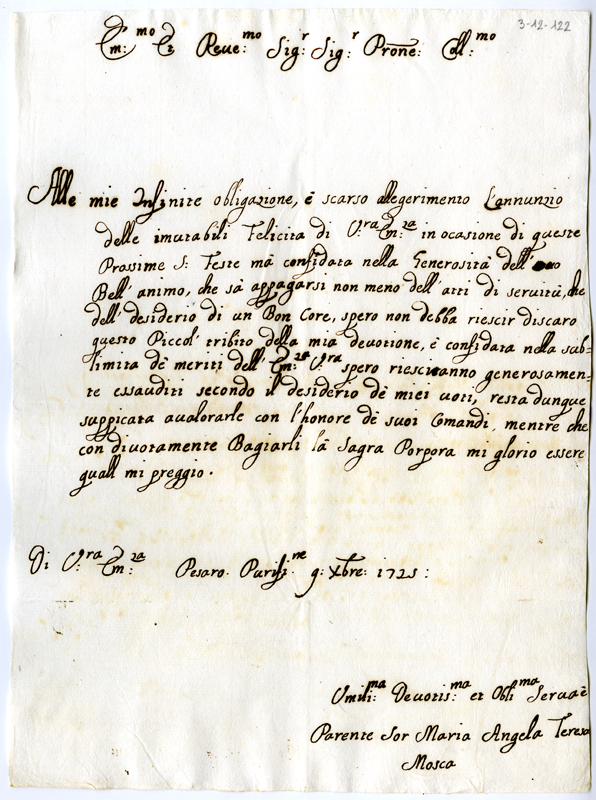 3-12-122
Em:mo Et Reue:mo Sig:r Sig:r Prone: Coll:mo
Alle mie Infinite obligazione, è scarso allegerimento L'annunzio
delle imutabili Felicita di V:ra Em:za in ocasione di queste
Prossime S: Feste mà confidata nella Generosità dell' suo
Bell' animo, che sà appagarsi non meno dell' atti di seruitù, che
dell' desiderio di un Bon Core, spero non debba riescir discaro
questo Piccol' tribito della mia deuotione, è confidata nella sub-
limita dè meriti dell' Em:za V:ra spero riesciranno generosamen-
te essauditi secondo il desiderio dè miei uoti, resta dunque
suppicata aualorarle con l'honore dè suoi Comandi, mentre che
con diuotamente Bagiarli là Sagra Porpora mi glorio essere
quall mi preggio.
Di V:ra Em:za Pesaro. Purifi:ne 9: Xbre: 1725:
Vmili:ma Deuotis:ma et Obli:ma Serua è
Parente Sor Maria Angela Teresa
Mosca